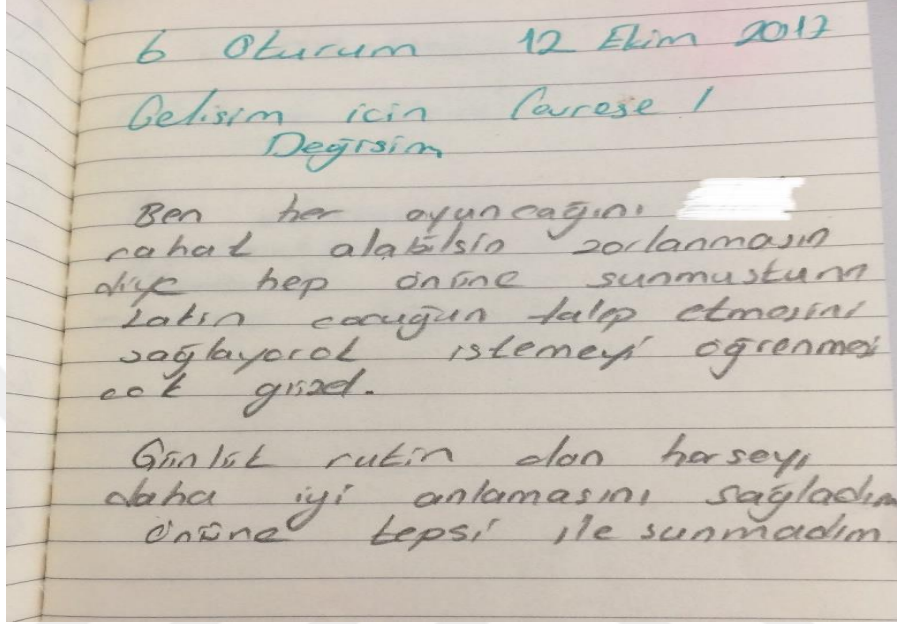 6 Oturum 12 Ekim 2017
Gelisim icin Cevrese /
Değisim
Ben her oyuncağını
rahat alabilsin zorlanmasın
diye hep önüne sunmustum
Lakin cocuğun talep etmesini
sağlayarak istemeyi oğrenmesi
cok güzel.
Günlük rutin olan herseyi
daha iyi anlamasını sağladım
önüne tepsi ile sunmadım